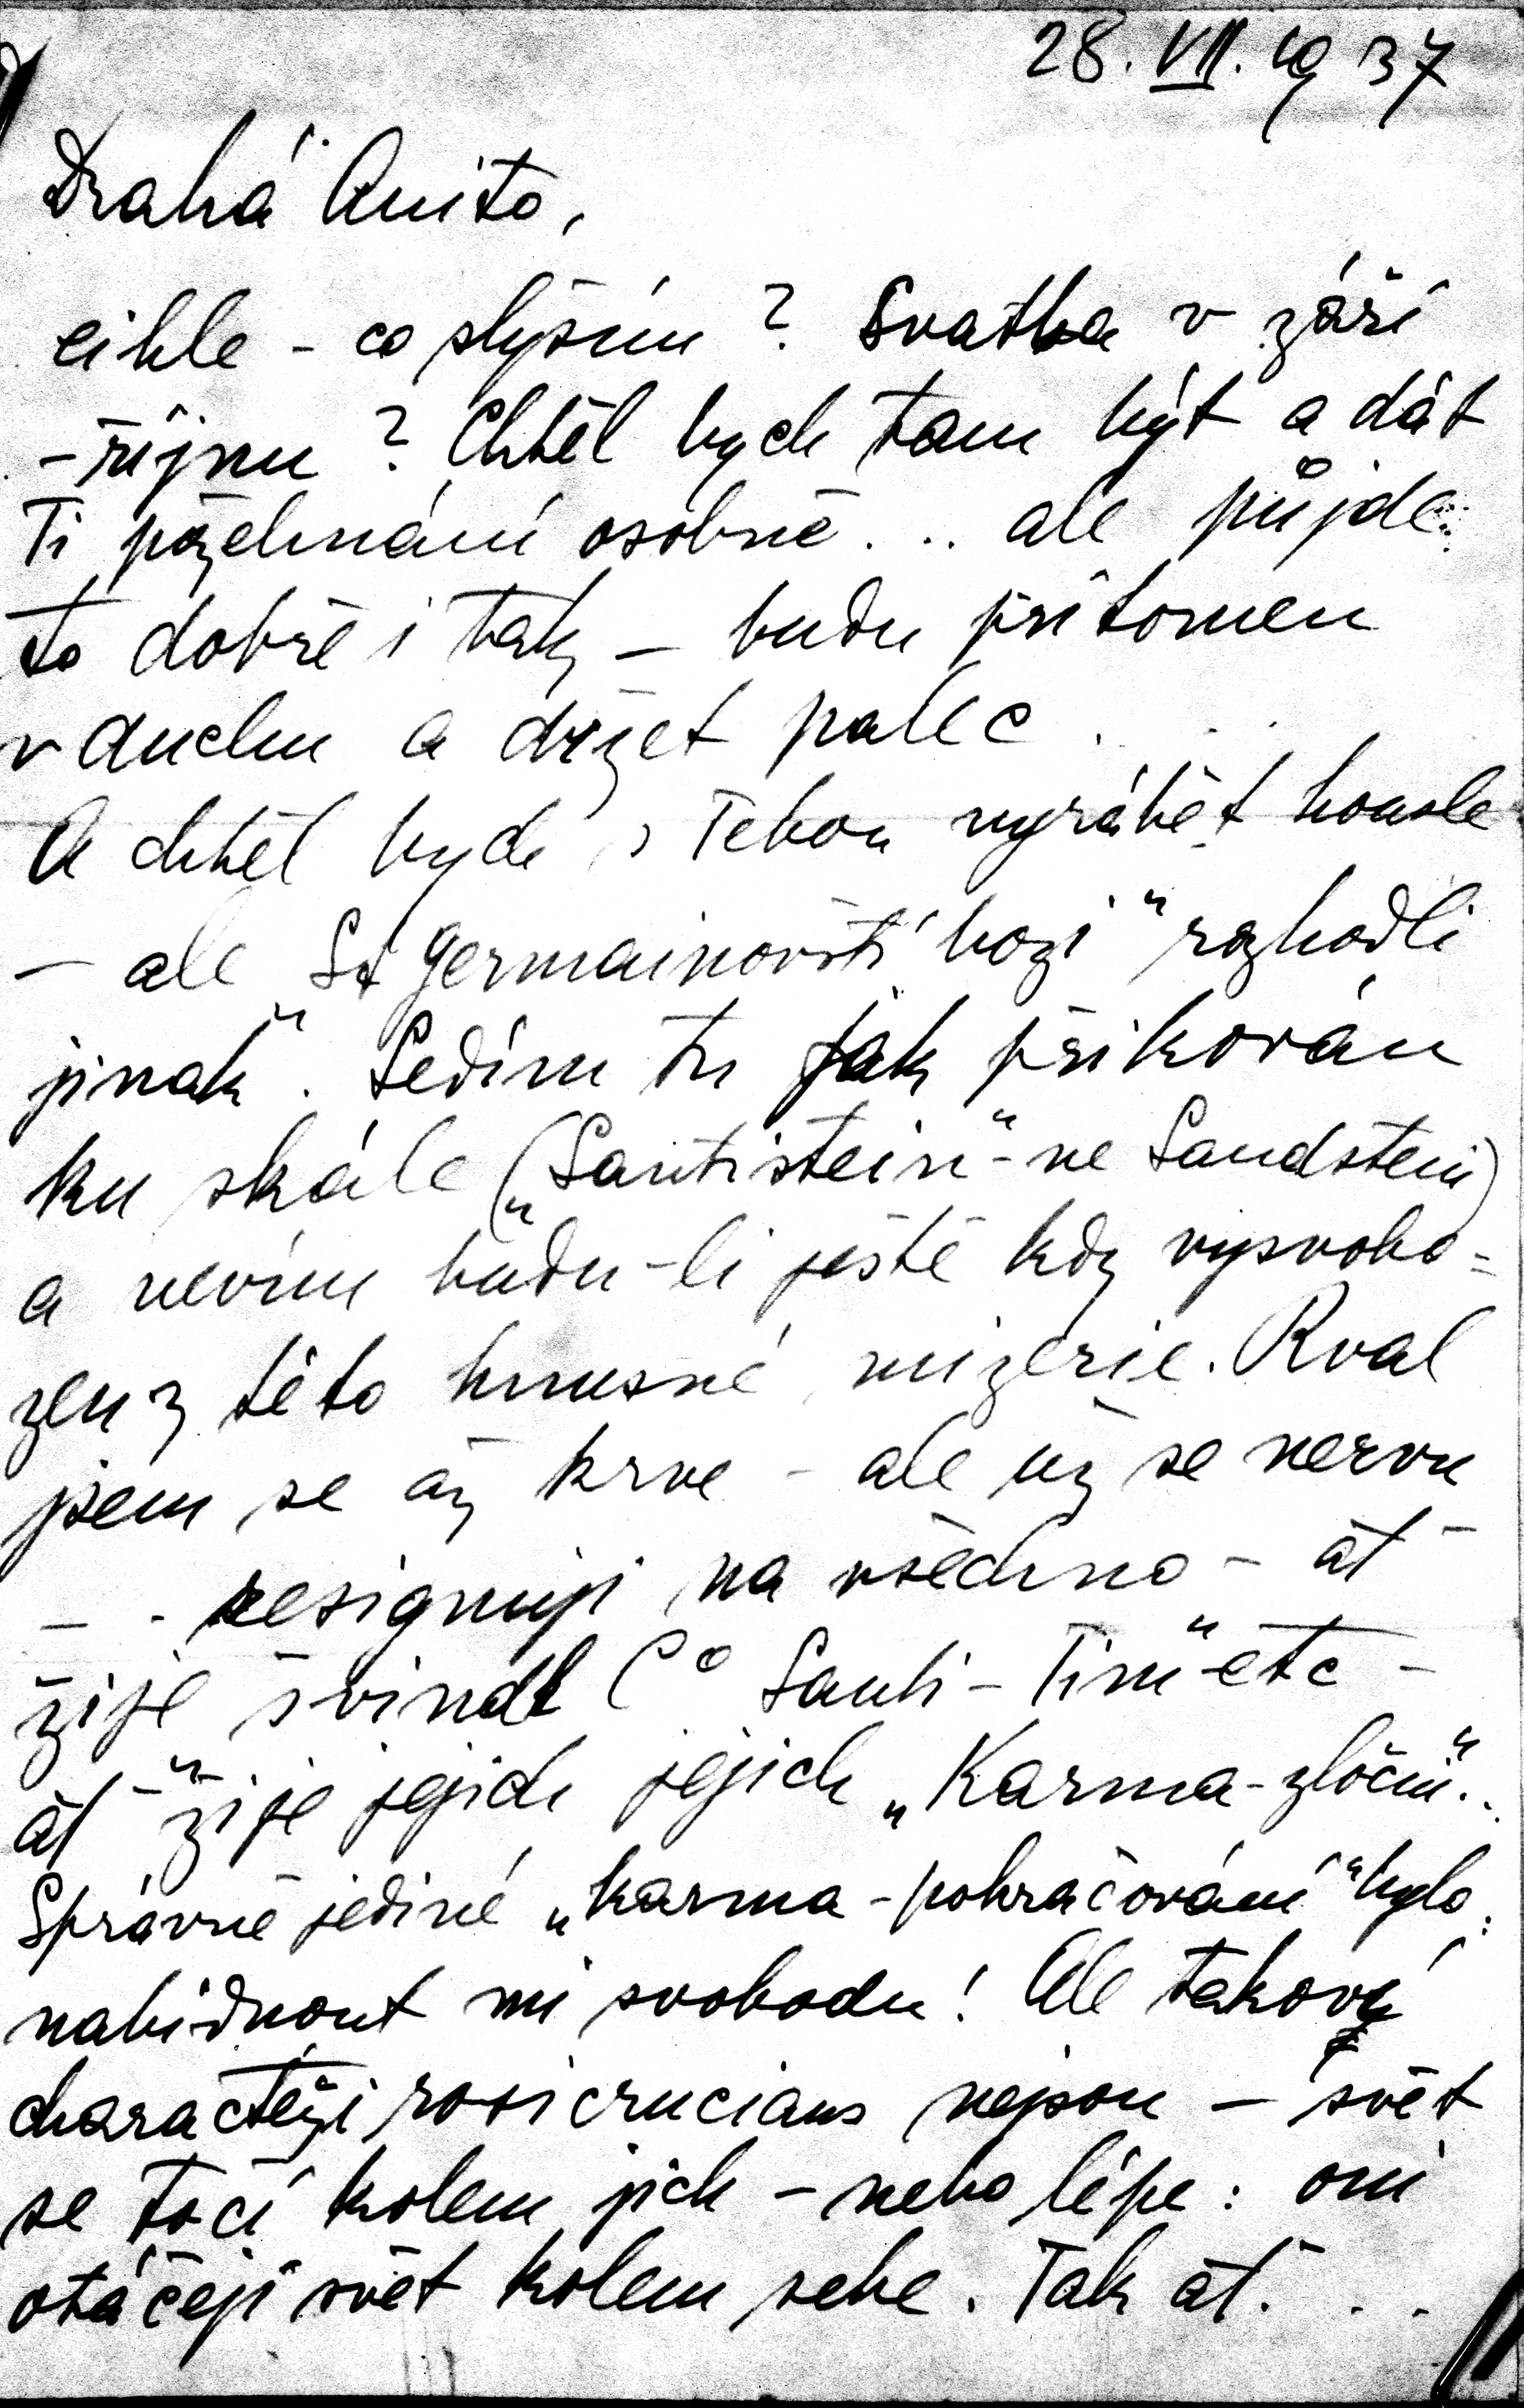 28. VII. 1937
Drahá Anito,
eihle - co slyším? Svatba v září
- říjnu? Chtěl bych tam být a dát
Ti požehnání osobně... ale půjde
to dobře i tak - budu přítomen
v duchu a držet palec...
A chtěl bych s Tebou vyrábět housle
- ale „St Germainovští bozi" rozhodli
jinak". Sedím tu jak přikován
ku skále („Santistein" - ne Sandstein)
a nevím budu-li ještě kdy vysvobo=
zen z této hnusné mizerie. Rval
jsem se až krve - ale už se nervu
- - resignuji na všechno - ať
žije švindl Co Santi-Tim" etc -
ať „žije jejich jejich „Karma-zločin"..
Správné jediné „karma-pokračování" bylo:
nabídnout mi svobodu! Ale takový
characteři rosicrucians nejsou - svět
se točí kolem jich - nebo lépe: oni
otáčejí svět kolem sebe. Tak ať...